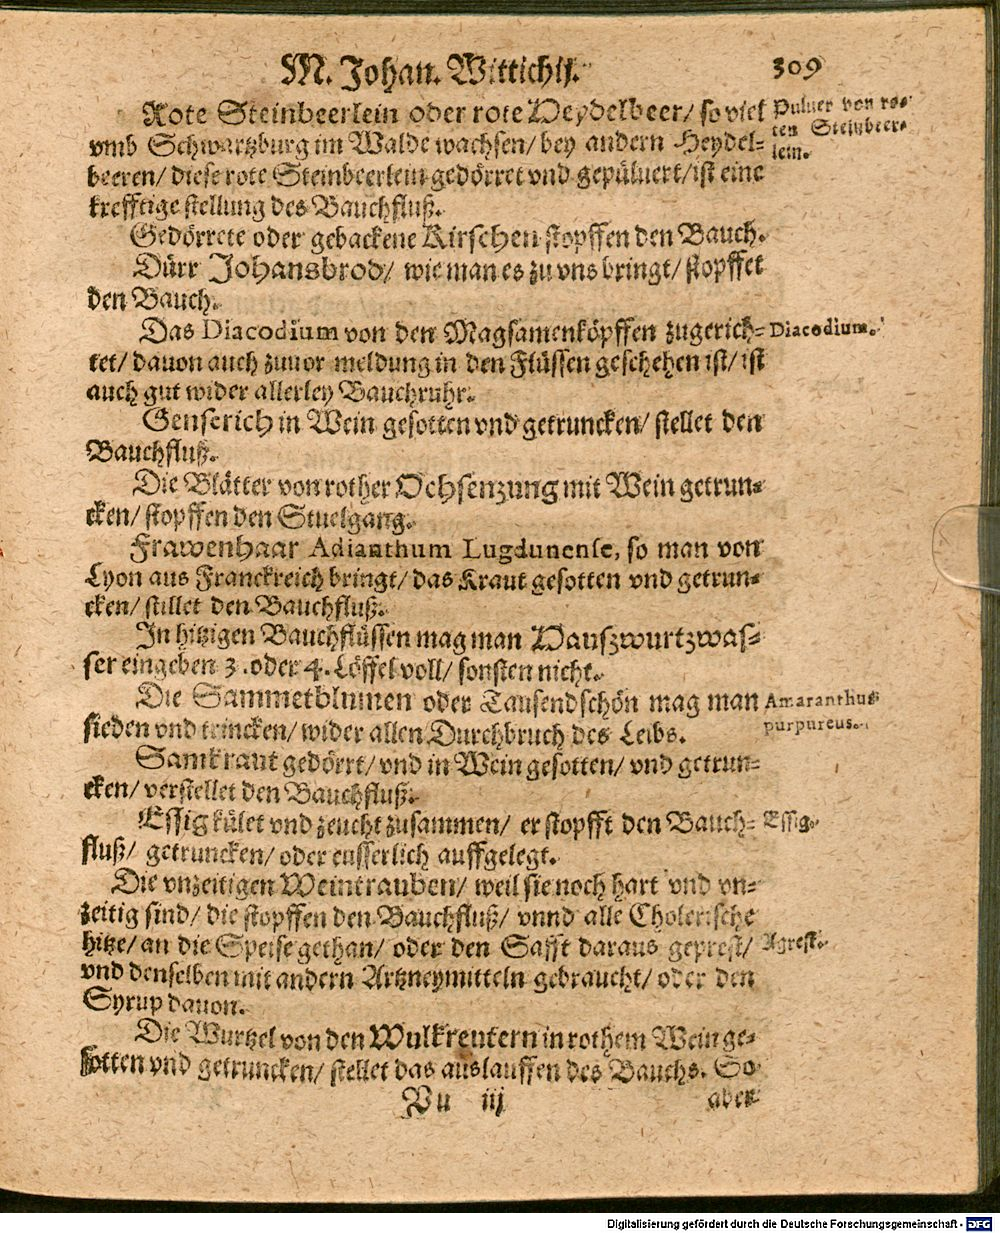 M. Johan. Wittichij. 309
Rote Steinbeerlein oder rote Heydelbeer/ so viel
Puluer von ro⸗
ten Steinbeer⸗
lein.
vmb Schwartzburg im Walde wachsen/ bey andern Heydel⸗
beeren/ diese rote Steinbeerlein gedörret vnd gepüluert/ ist eine
krefftige stellung des Bauchfluß.
Gedörrete oder gebackene Kirschen stopffen den Bauch.
Dürr Johansbrod/ wie man es zu vns bringt/ stopffet
den Bauch.
Das Diacodium von den Magsamenköpffen zugerich⸗
Diacodium.
tet/ dauon auch zuuor meldung in den Flüssen geschehen ist/ ist
auch gut wider allerley Bauchruhr.
Genserich in Wein gesotten vnd getruncken/ stellet den
Bauchfluß.
Die Blätter von rother Ochsenzung mit Wein getrun⸗
cken/ stopffen den Stuelgang.
Frawenhaar Adianthum Lugdunense, so man von
Lyon aus Franckreich bringt/ das Kraut gesotten vnd getrun⸗
cken/ stillet den Bauchfluß.
In hitzigen Bauchflüssen mag man Hauszwurtzwas⸗
ser eingeben 3. oder 4. Löffel voll/ sonsten nicht.
Die Sammetblumen oder Tausendschön mag man
Amaranthus
purpureus.
sieden vnd trincken/ wider allen Durchbruch des Leibs.
Samkraut gedörrt/ vnd in Wein gesotten/ vnd getrun⸗
cken/ verstellet den Bauchfluß.
Essig kület vnd zeucht zusammen/ er stopfft den Bauch⸗
Essig.
fluß/ getruncken/ oder eusserlich auffgelegt.
Die vnzeitigen Weintrauben/ weil sie noch hart vnd vn⸗
zeitig sind/ die stopffen den Bauchfluß/ vnnd alle Cholerische
hitze/ an die Speise gethan/ oder den Safft daraus geprest/
Agrest.
vnd denselben mit andern Artzneymitteln gebraucht/ oder den
Syrup dauon.
Die Wurtzel von den Wulkreutern in rothem Wein ge⸗
sotten vnd getruncken/ stellet das auslauffen des Bauchs. So
Vu iij aber
Digitalisierung gefördert durch die Deutsche Forschungsgemeinschaft - DFG